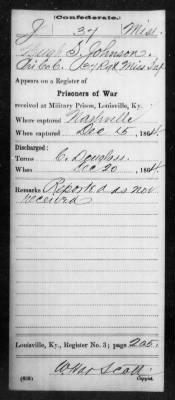 (Confederate.)
J 37 Miss.
S. Johnson
Co. C. Regt Miss Inf
Appears on a Register of
Prisoners of War
received at Military Prison, Louisville, Ky.
Where captured Nashville
When captured Dec 15, 1864.
Discharged:
Terms C. Douglas.
When Dec 20, 1864.
Remarks Reported as not
received
Louisville, Ky., Register No. 3; page 205.
Scott
Copyist.